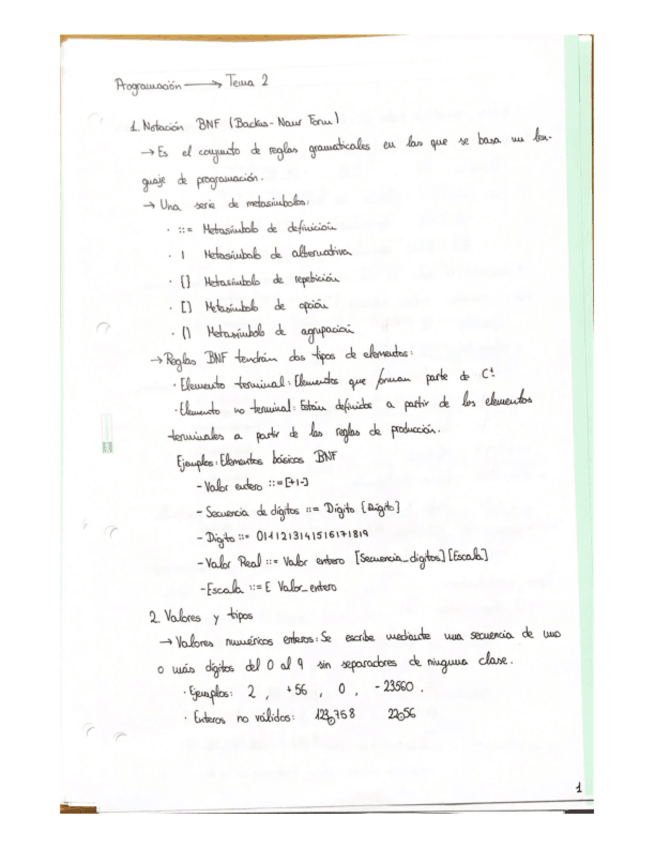 Programación → Tema 2
1. Notación BNF (Backus-Naur Form)
→ Es el conjunto de reglas gramaticales en las que se basa un len-
guaje de programación.
→ Una serie de metasímbolos:
· ::= Metasímbolo de definición
· | Metasímbolo de alternativa
· {} Metasímbolo de repetición
· [] Metasímbolo de opción
· () Metasímbolo de agrupación
→ Reglas BNF tendrán dos tipos de elementos:
· Elemento terminal: Elementos que forman parte de C±
· Elemento no terminal: Están definidos a partir de los elementos
terminales a partir de las reglas de producción.
Ejemplos: Elementos básicos BNF
- Valor entero ::= [+|-]
- Secuencia de dígitos ::= Dígito {Dígito}
- Dígito ::= 0|1|2|3|4|5|6|7|8|9
- Valor Real ::= Valor entero [Secuencia_digitos] [Escala]
- Escala ::= E Valor_entero
2. Valores y tipos
→ Valores numéricos enteros: Se escribe mediante una secuencia de uno
o más dígitos del 0 al 9 sin separadores de ninguna clase.
· Ejemplos: 2 , +56 , 0 , -23560 .
· Enteros no válidos: 123,768 22 56
1